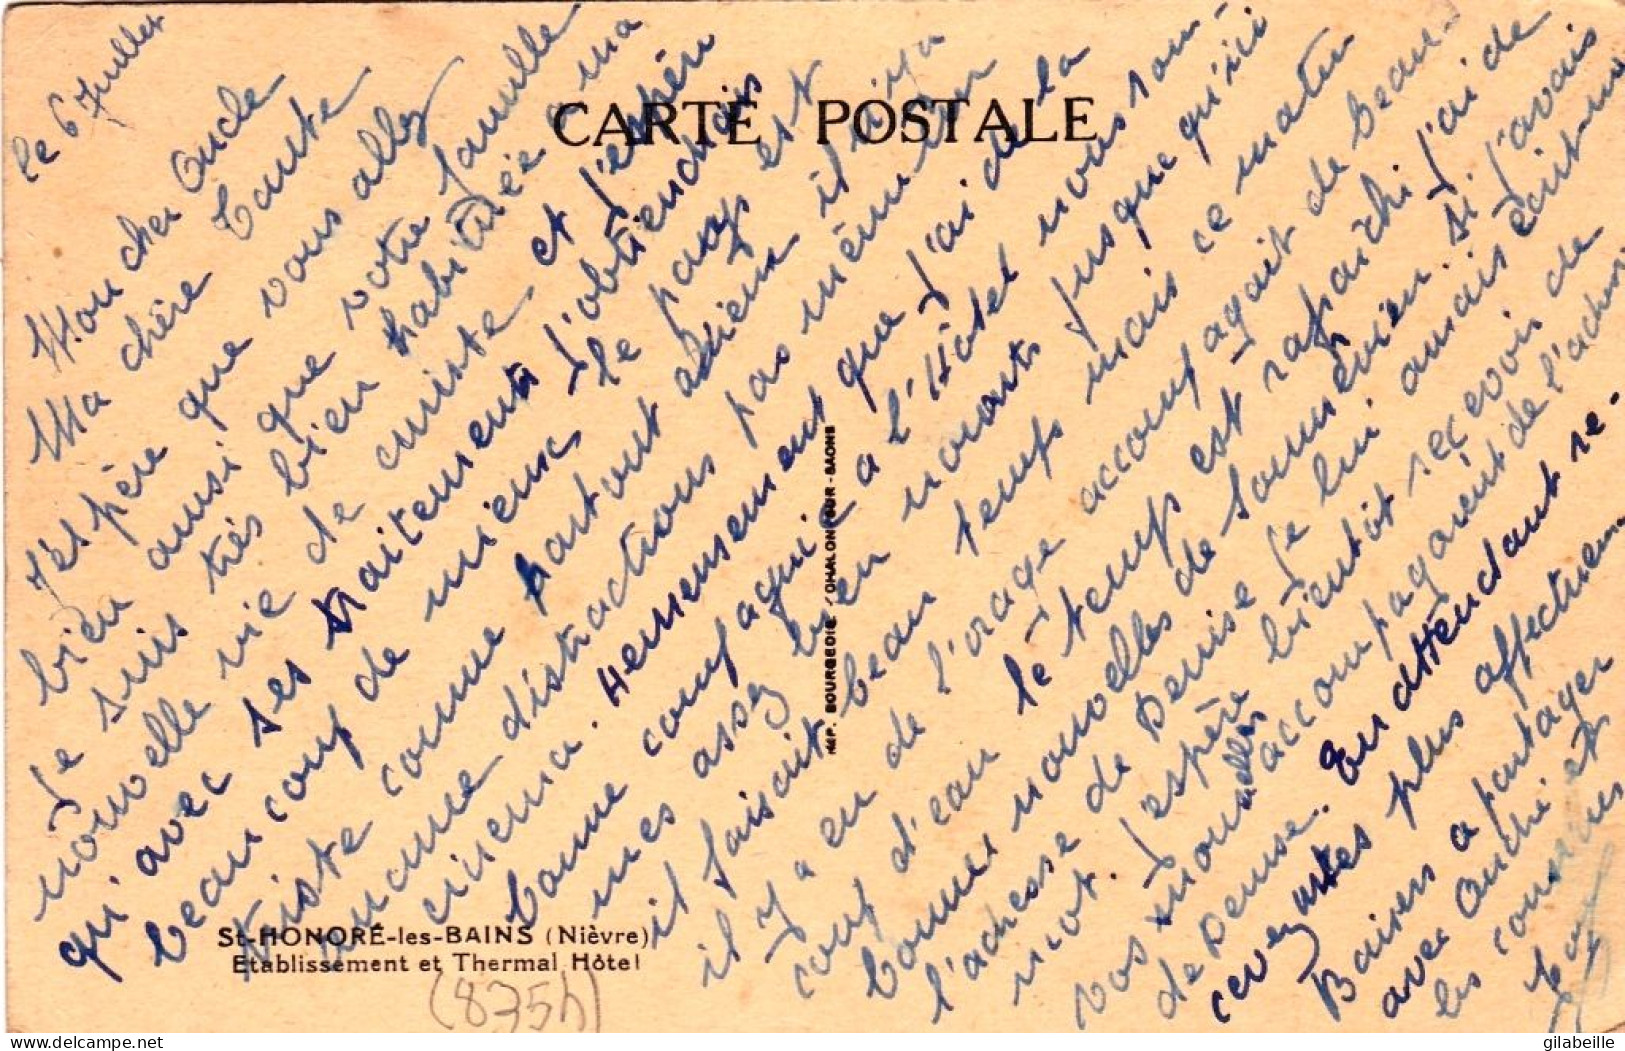 le 6 Juillet
Mon cher Oncle
Ma chère Tante
J'espère que vous allez
bien aussi que votre famille
Je suis très bien habituée à ma
nouvelle vie de curiste et j'espère
qu'avec ses traitements j'obtiendrais
beaucoup de mieux le pays est
triste comme partout ailleurs il n'y a
aucune distractions pas même un
cinéma. Heureusement que j'ai de la
bonne compagnie à l'Hôtel nous som-
mes assez bien nourris jusque qu'ici
il faisait beau temps mais ce matin
il y a eu de l'orage accompagnait de beau-
coup d'eau le temps est rafraîchi j'ai de
bonnes nouvelles de Sommevien. Si j'avais
l'adresse de Denise je lui aurais écrit un
mot. J'espère bientôt recevoir de
vos nouvelles accompagnarent de l'adresse
de Denise. En attendant re-
cevez mes plus affectueux
Baisers a partager
avec Ouchi et
les cousins
CARTE POSTALE
IMP. BOURGEOIS, CHALON-SUR-SAONE
St-HONORÉ-les-BAINS (Nièvre)
Etablissement et Thermal Hôtel
(8354)
delcampe.net
gilabeille